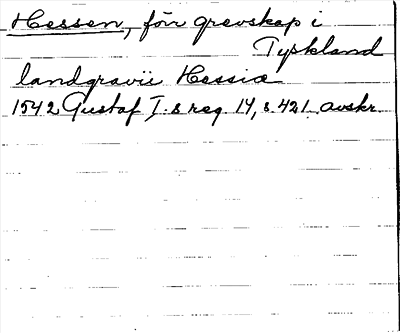 Hessen, förr grevskap i
Tyskland
landgravii Hessiæ
1542 Gustaf I:s reg. 14, s. 421. avskr.